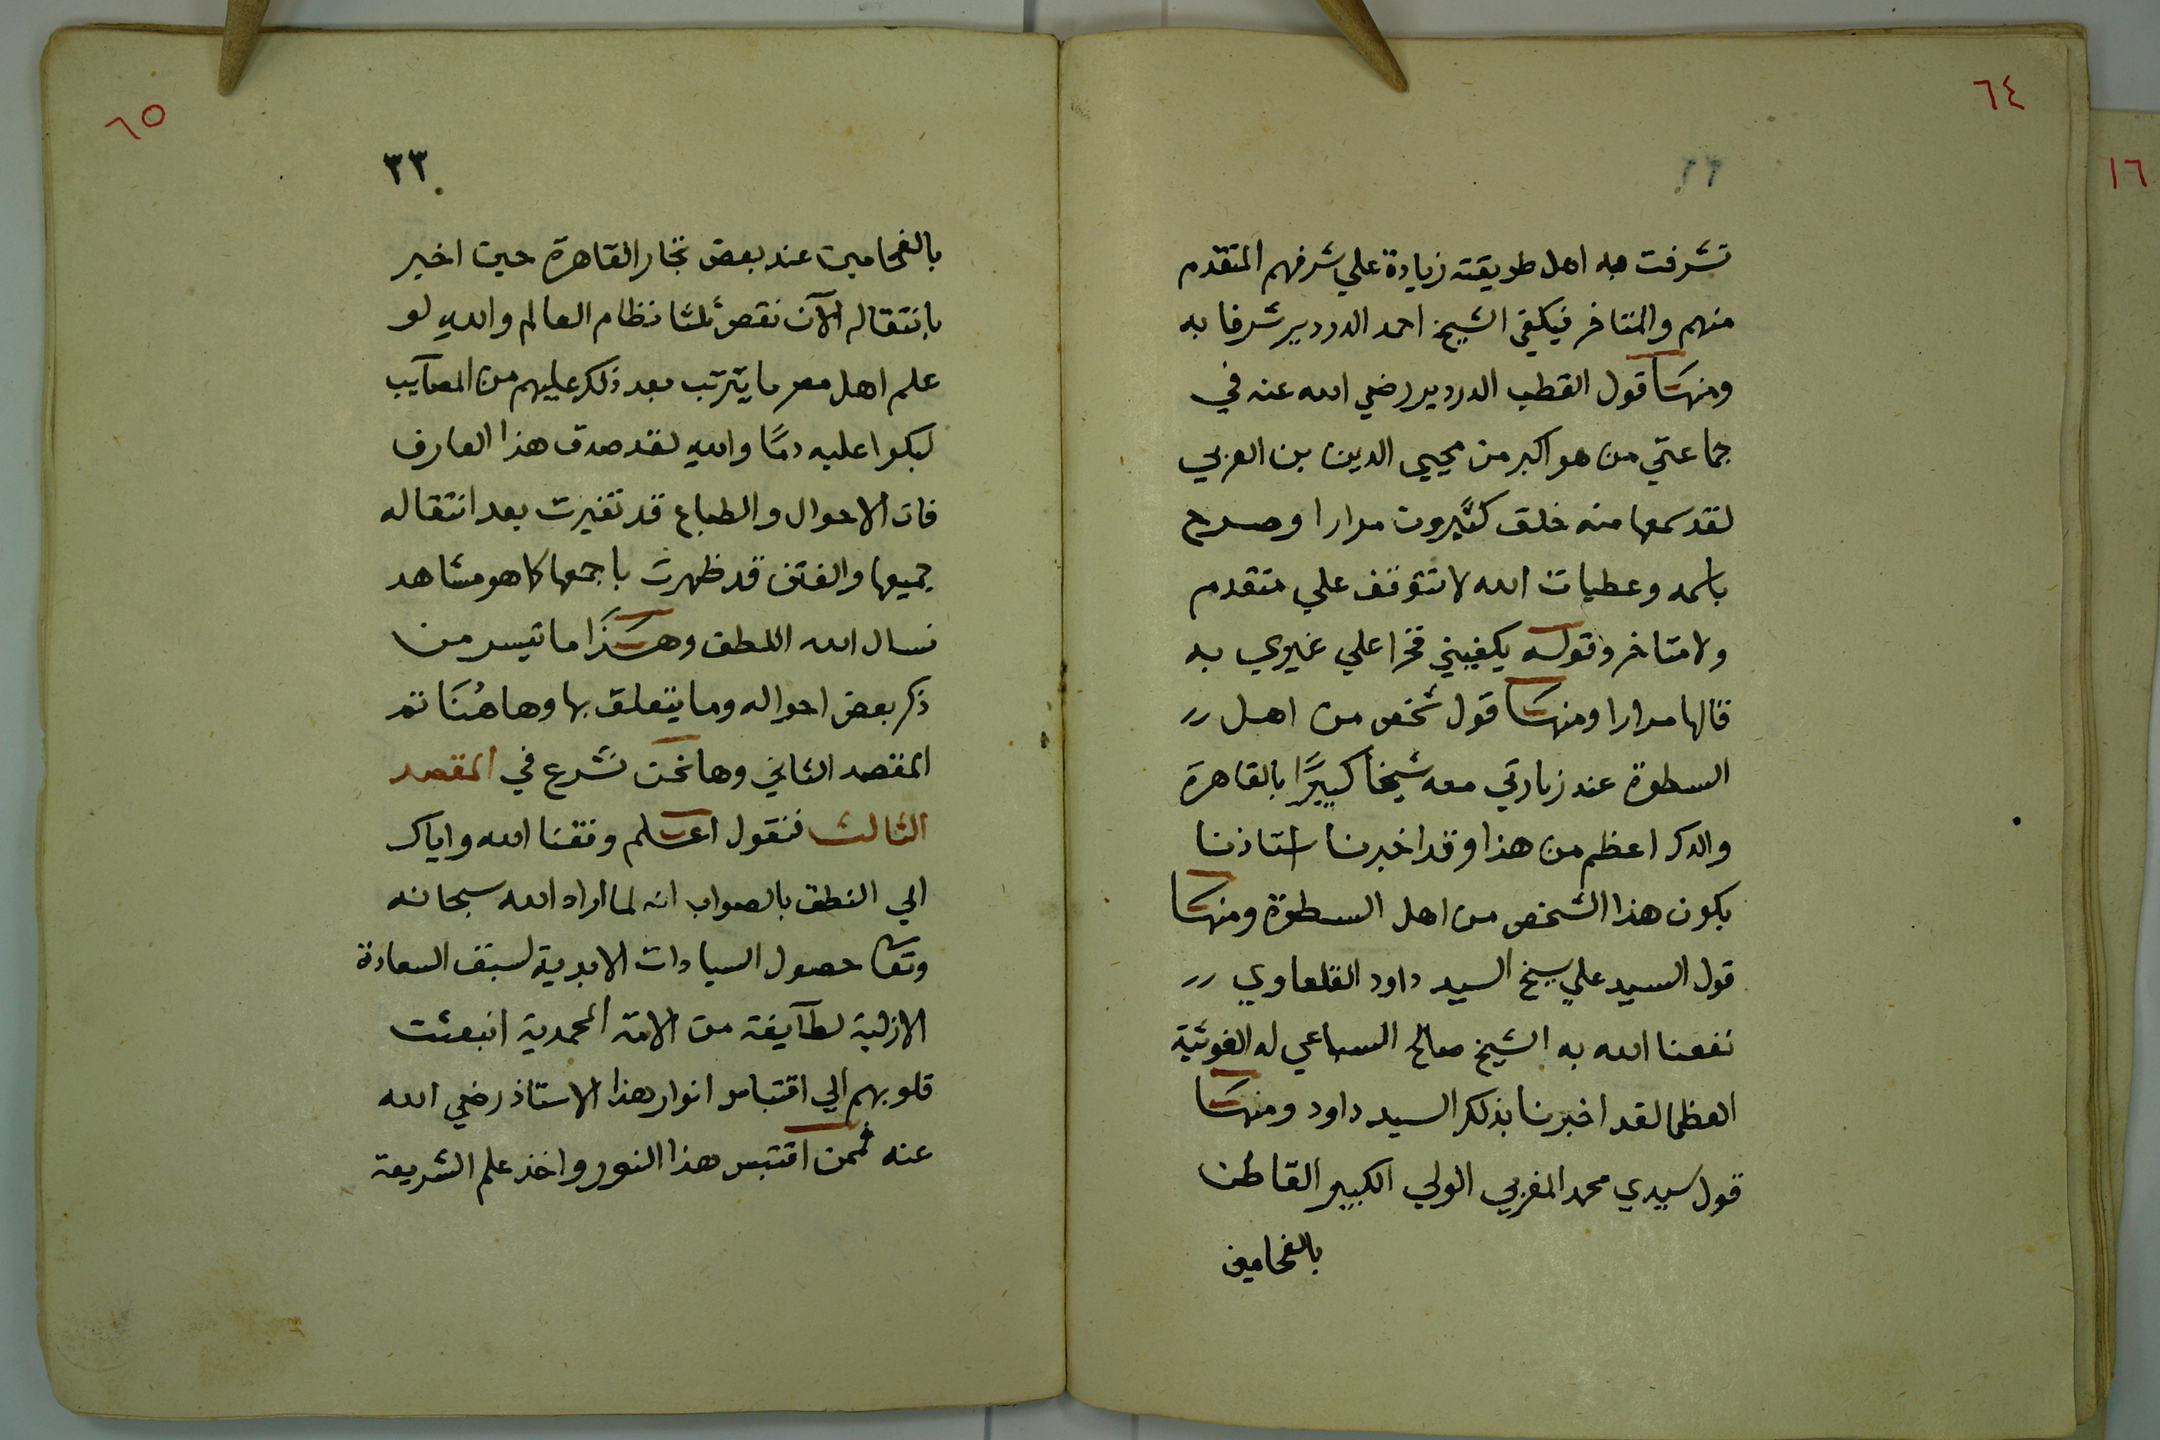 ٦٤
١٦
تشرفت به اهل طريقته زيادة علي شرفهم المتقدم
منهم والمتاخر فيكفي الشيخ احمد الدردير شرفا به
ومنها قول القطب الدردير رضي الله عنه في
جماعتي من هو اكبر من محيي الدين بن العربي
لقد سمعها منه خلق كثيرون مرارا وصرح
باسمه وعطيات الله لا تتوقف علي متقدم
ولا متاخر وقوله يكفيني فخرا علي غيري به
قالها مرارا ومنها قول شخص من اهل
السطوة عند زيارتي معه شيخا كبيرًا بالقاهرة
والدك اعظم من هذا وقد اخبرنا استاذنا
بكون هذا الشخص من اهل السطوة ومنها
قول السيد علي شيخ السيد داود القلعاوي
نفعنا الله به الشيخ صالح السباعي له الغوثية
العظما لقد اخبرنا بذلك السيد داود ومنها
قول سيدي محمد المغربي الولي الكبير القاطن
بالفحامين
٦٥
٣٣
بالفحامين عند بعض تجار القاهرة حين اخبر
بانتقاله الآن نقص ثلثا نظام العالم والله لو
علم اهل مصر ما يترتب بعد ذلك عليهم من المصآيب
لبكوا عليه دمًا والله لقد صدق هذا العارف
فان الاحوال والطباع قد تغيرت بعد انتقاله
جميعها والفتن قد ظهرت باجمعها كما هو مشاهد
نسال الله اللطف وهذا ما تيسر من
ذكر بعض احواله وما يتعلق بها وهاهُنَا تم
المقصد الثاني وها نحن نشرع في المقصد
الثالث فنقول اعلم وفقنا الله واياك
الي النطق بالصواب انه لما اراد الله سبحانه
وتعا حصول السيادات الابدية لسبق السعادة
الازلية لطآيفة من الامة المحمدية انبعثت
قلوبهم الي اقتباس انوار هذا الاستاذ رضي الله
عنه فممن اقتبس هذا النور واخذ علم الشريعة